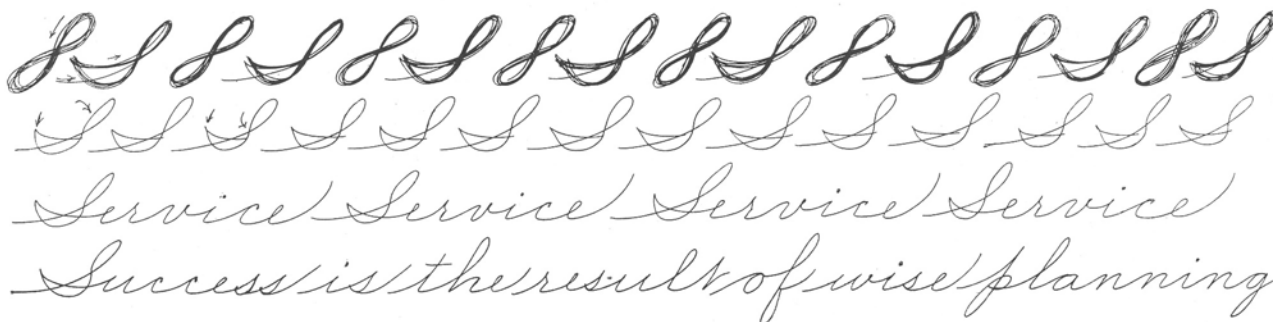 8 S 8 S 8 S 8 S 8 S 8 S 8 S 8 S
S S S S S S S S S S S S S S
Service Service Service Service
Success is the result of wise planning